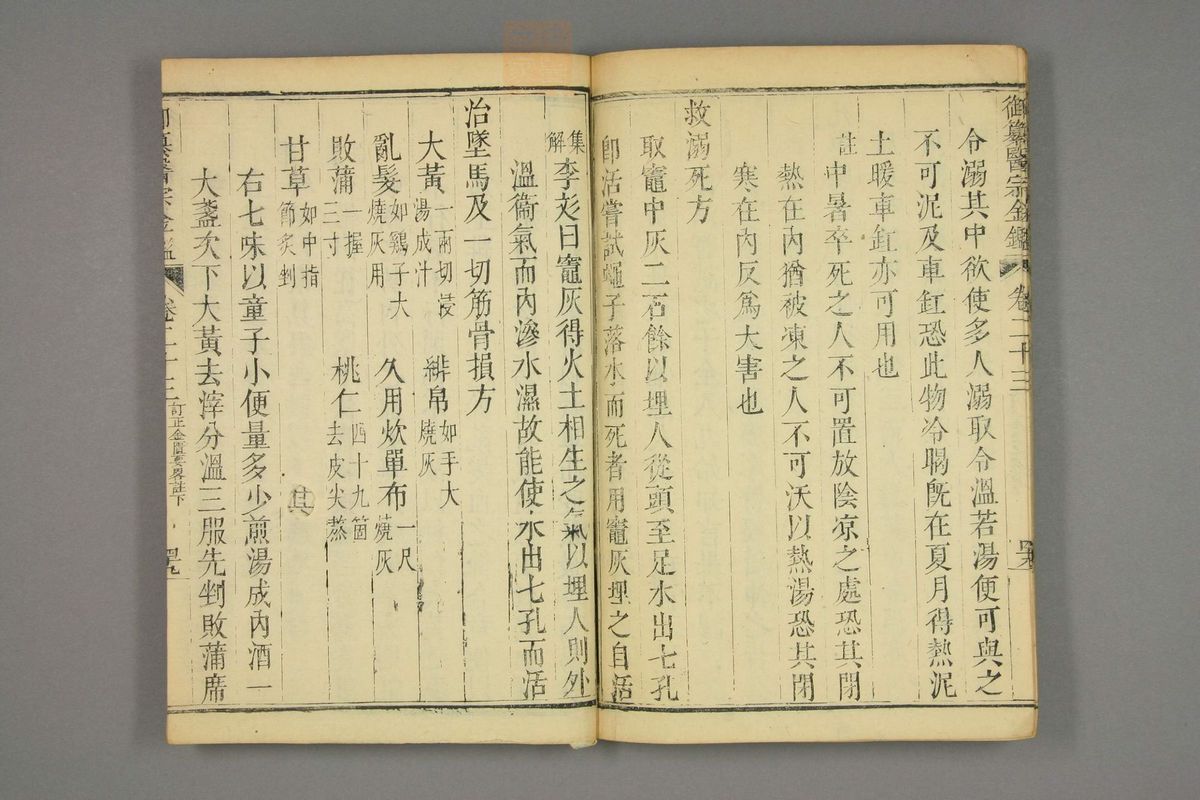 御纂醫宗金鑑 卷二十三
令溺其中欲使多人溺取令溫若湯便可與之
不可泥及車缸恐此物冷暍既在夏月得熱泥
土暖車缸亦可用也
註中暑卒死之人不可置放陰凉之處恐其閉
熱在內猶被凍之人不可沃以熱湯恐其閉
寒在內反爲大害也
救溺死方
取竈中灰二石餘以埋人從頭至足水出七孔
卽活嘗試蠅子落水而死者用竈灰埋之自活
集解李彣曰竈灰得火土相生之氣以埋人則外
溫衞氣而內滲水濕故能使水出七孔而活
治墜馬及一切筋骨損方
大黃一兩切浸湯成汁 緋帛如手大燒灰
亂髮如雞子大燒灰用 久用炊單布一尺燒灰
敗蒲一握三寸 桃仁四十九箇去皮尖熬
甘草如中指節炙剉
右七味以童子小便量多少煎湯成內酒一
大盞次下大黃去滓分溫三服先剉敗蒲席
卷二十三 訂正金匱要畧註下